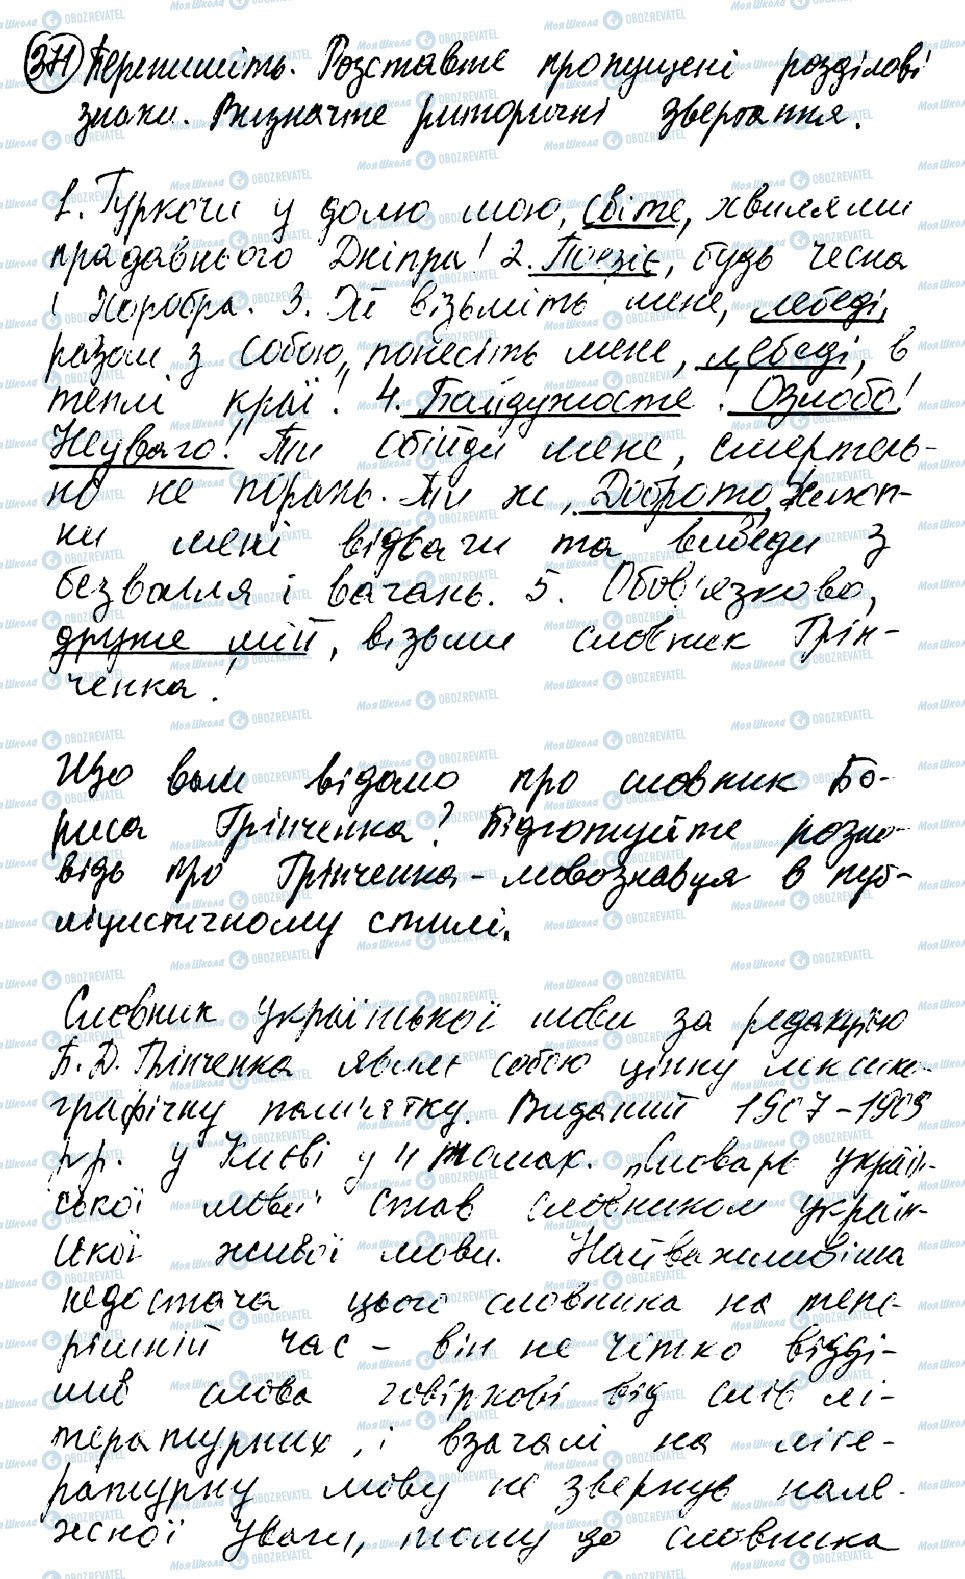 371 Перепишіть. Розставте пропущені розділові
знаки. Визначте риторичні звертання.
1. Туркочи у долю мою, світе, хвилями
прадавнього Дніпра! 2. Поезіє, будь чесна
і хоробра. 3. Ой візьміть мене, лебеді,
разом з собою, понесіть мене, лебеді, в
теплі краї! 4. Байдужосте! Ознобо!
Неуваго! Ти обійди мене, смертель-
но не порань. Ти ж, Доброто, хлюп-
ни мені відваги та виведи з
безвалля і вагань. 5. Обов'язково,
друже мій, візьми словник Грін-
ченка!
Що вам відомо про словник Бо-
риса Грінченка? Підготуйте розпо-
відь про Грінченка - мовознавця в пуб-
ліцистичному стилі.
Словник української мови за редакцією
Б. Д. Грінченка являє собою цінну лексико-
графічну пам'ятку. Виданий 1907-1909
рр. у Києві у 4 томах. "Словарь україн-
ської мови" став словником україн-
ської живої мови. Найважливіша
недостача цього словника на тепе-
рішній час - він не чітко відді-
лив слова говіркові від слів лі-
тературних, і взагалі на літе-
ратурну мову не звернув нале-
жної уваги, тому до словника